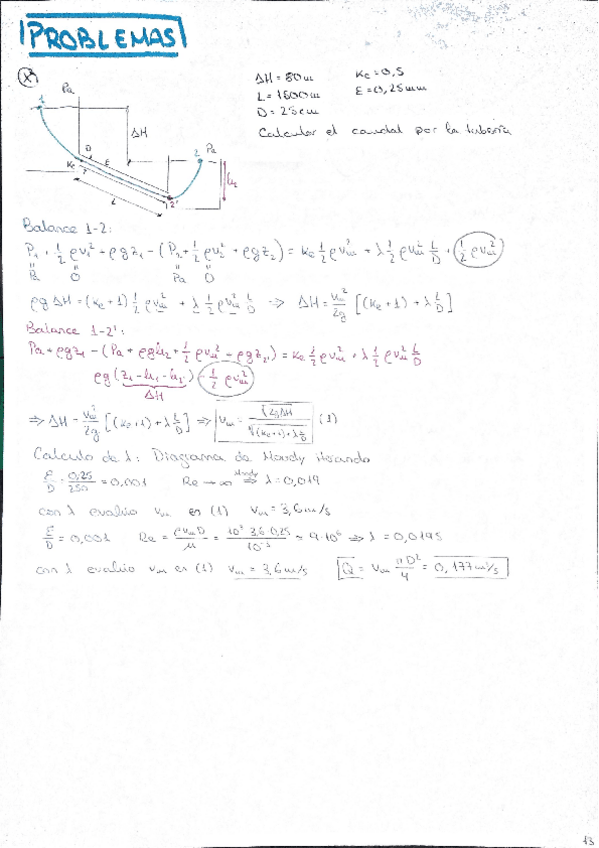 PROBLEMAS
ΔH = 80 m   Ke = 0,5
L = 1500 m   E = 0,25 mm
D = 25 cm
Calcular el caudal por la tubería
Pa
1
ΔH
D
E
Pa
2
Ke
L
2'
Balance 1-2:
P₁ + ½ρv₁² + ρgz₁ - (P₂ + ½ρv₂² + ρgz₂) = Ke ½ρvm² + λ ½ρvm² L/D + ½ρvm²
Pa 0 Pa 0
ρgΔH = (Ke+1) ½ρvm² + λ ½ρvm² L/D ⇒ ΔH = vm²/2g [(Ke+1) + λ L/D]
Balance 1-2':
Pa + ρgz₁ - (Pa + ρgh₂ + ½ρvm² - ρgz₂') = Ke ½ρvm² + λ ½ρvm² L/D
ΔH
⇒ ΔH = vm²/2g [(Ke+1) + λ L/D] ⇒ vm = √(2gΔH)/√((Ke+1)+λ L/D) (1)
Calculo de λ: Diagrama de Moody
E/D = 0,25/250 = 0,001   Re → ∞ Moody ⇒ λ = 0,019
con λ evalúo vm en (1) vm = 3,6 m/s
E/D = 0,001   Re = ρvmD/μ = 10³ 3,6 0,25/10⁻³ ≈ 9·10⁵ ⇒ λ = 0,0195
con λ evalúo vm en (1) vm = 3,6 m/s   Q = vm πD²/4 = 0,177 m³/s
13